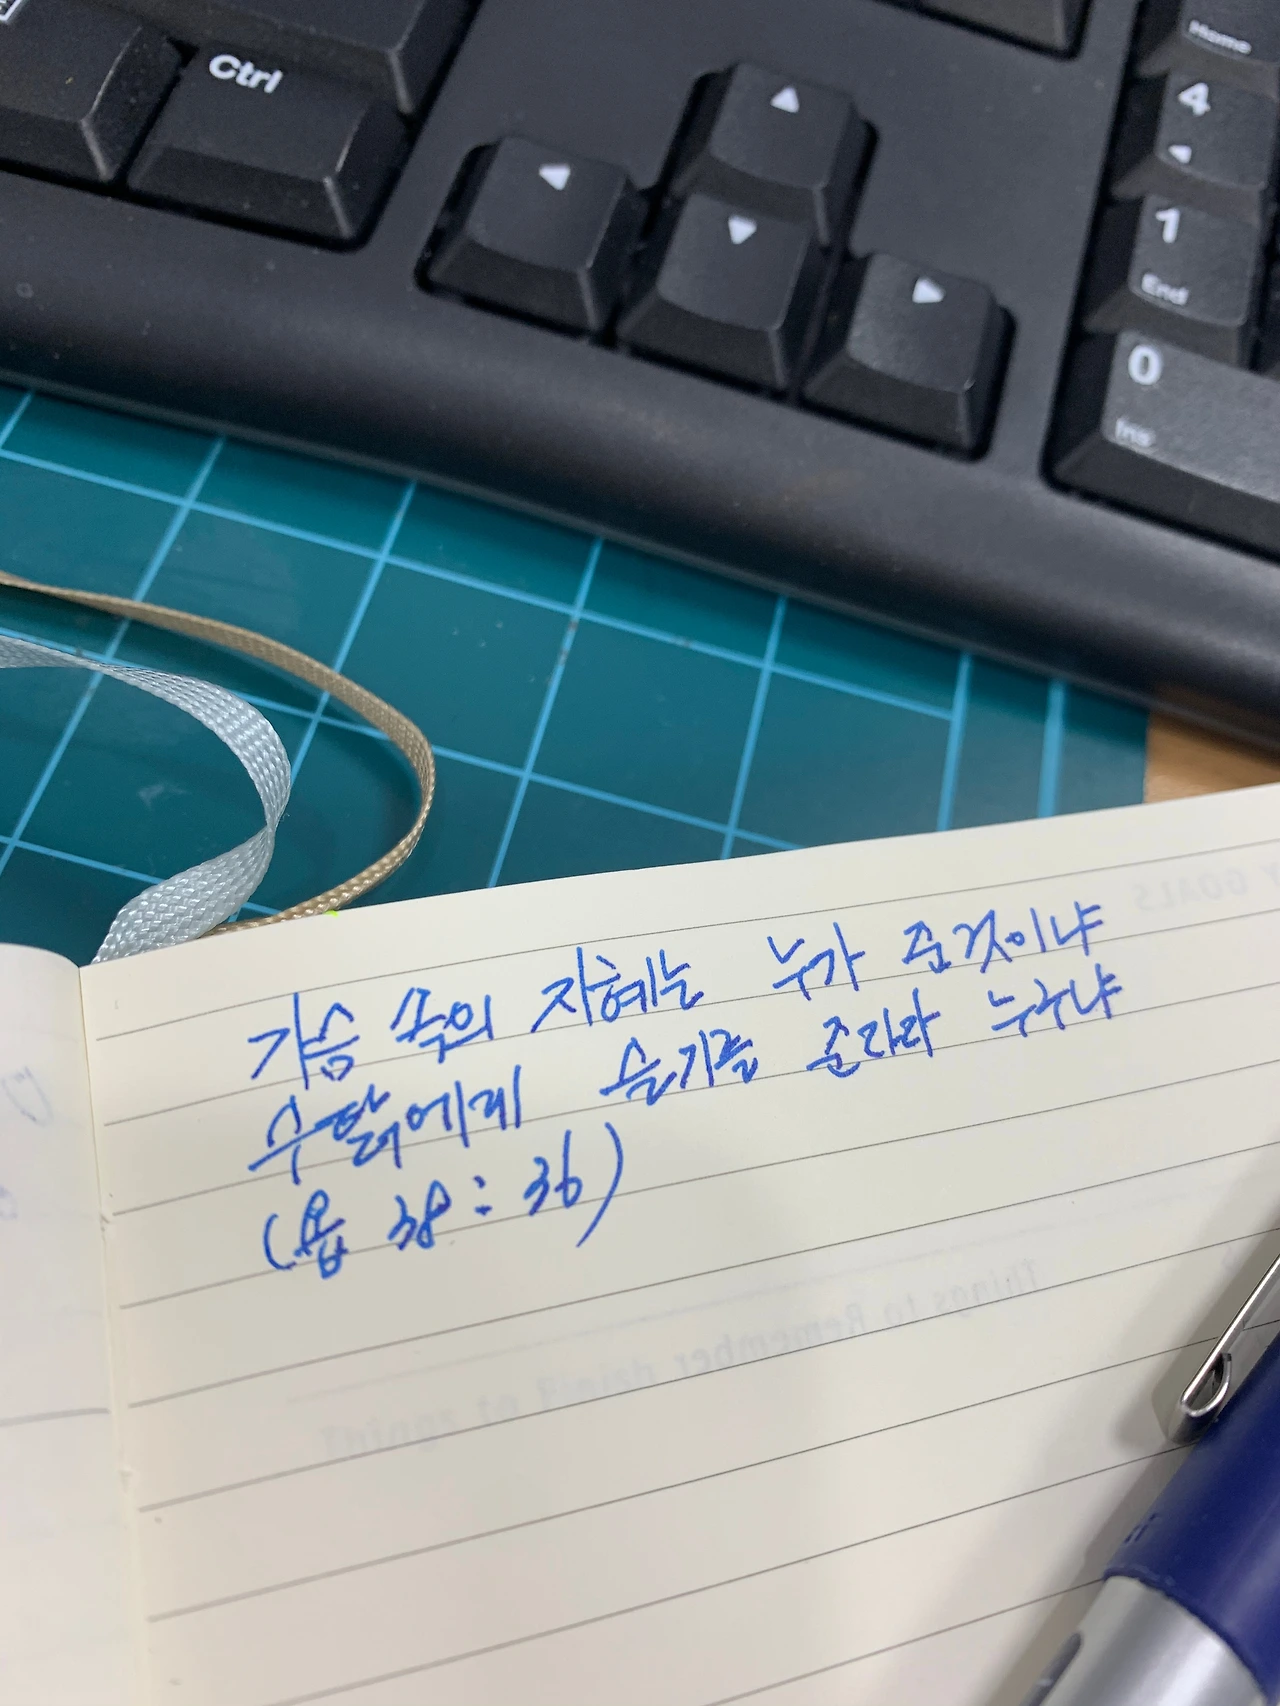 Ctrl
Home
4
1
End
0
Ins
Y GOALS
가슴 속의 지혜는 누가 준것이냐
수탉에게 슬기를 준자라 누구냐
(욥 38:36)
Things to Remember